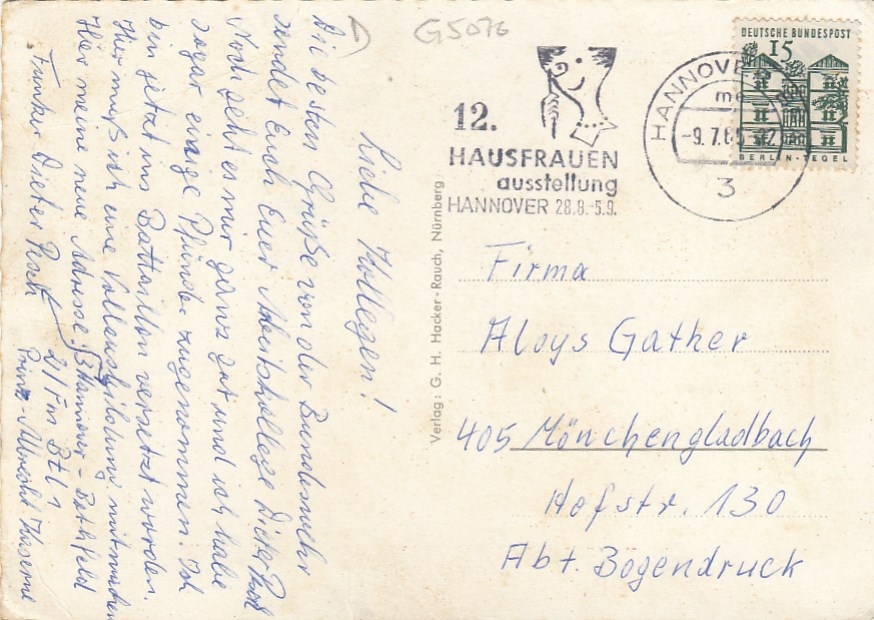 D
G5076
Liebe Kollegen!
Die besten Grüße von der Bundeswehr
sendet Euch Euer Arbeitskollege Dieter
Noch geht es mir ganz gut und ich habe
sogar einige Pfunde zugenommen. Ich
bin jetzt ins Battaillon versetzt worden.
Hier muß ich eine Vollausbildung mitmachen
Hier meine neue Adresse: 3 Hannover-Bothfeld
Funker Dieter 2/Fm Btl 1
Prinz-Albrecht Kaserne
Verlag: G. H. Hacker-Rauch, Nürnberg
12.
HAUSFRAUEN
ausstellung
HANNOVER 28.8.-5.9.
HANNOVER
-9.7.65
3
DEUTSCHE BUNDESPOST
15
BERLIN-TEGEL
Firma
Aloys Gather
405 Mönchengladbach
Hofstr. 130
Abt. Bogendruck